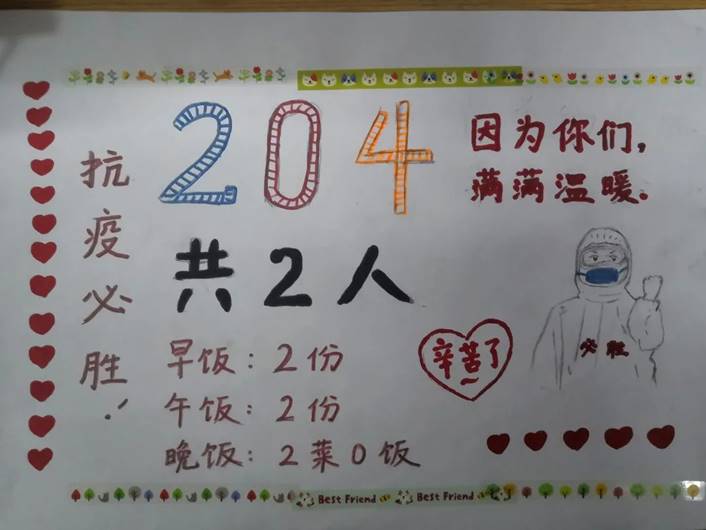 204
因为你们,
满满温暖.
抗疫必胜!
共2人
早饭:2份
午饭:2份
晚饭:2菜0饭
辛苦了
必胜
Best Friend
Best Friend